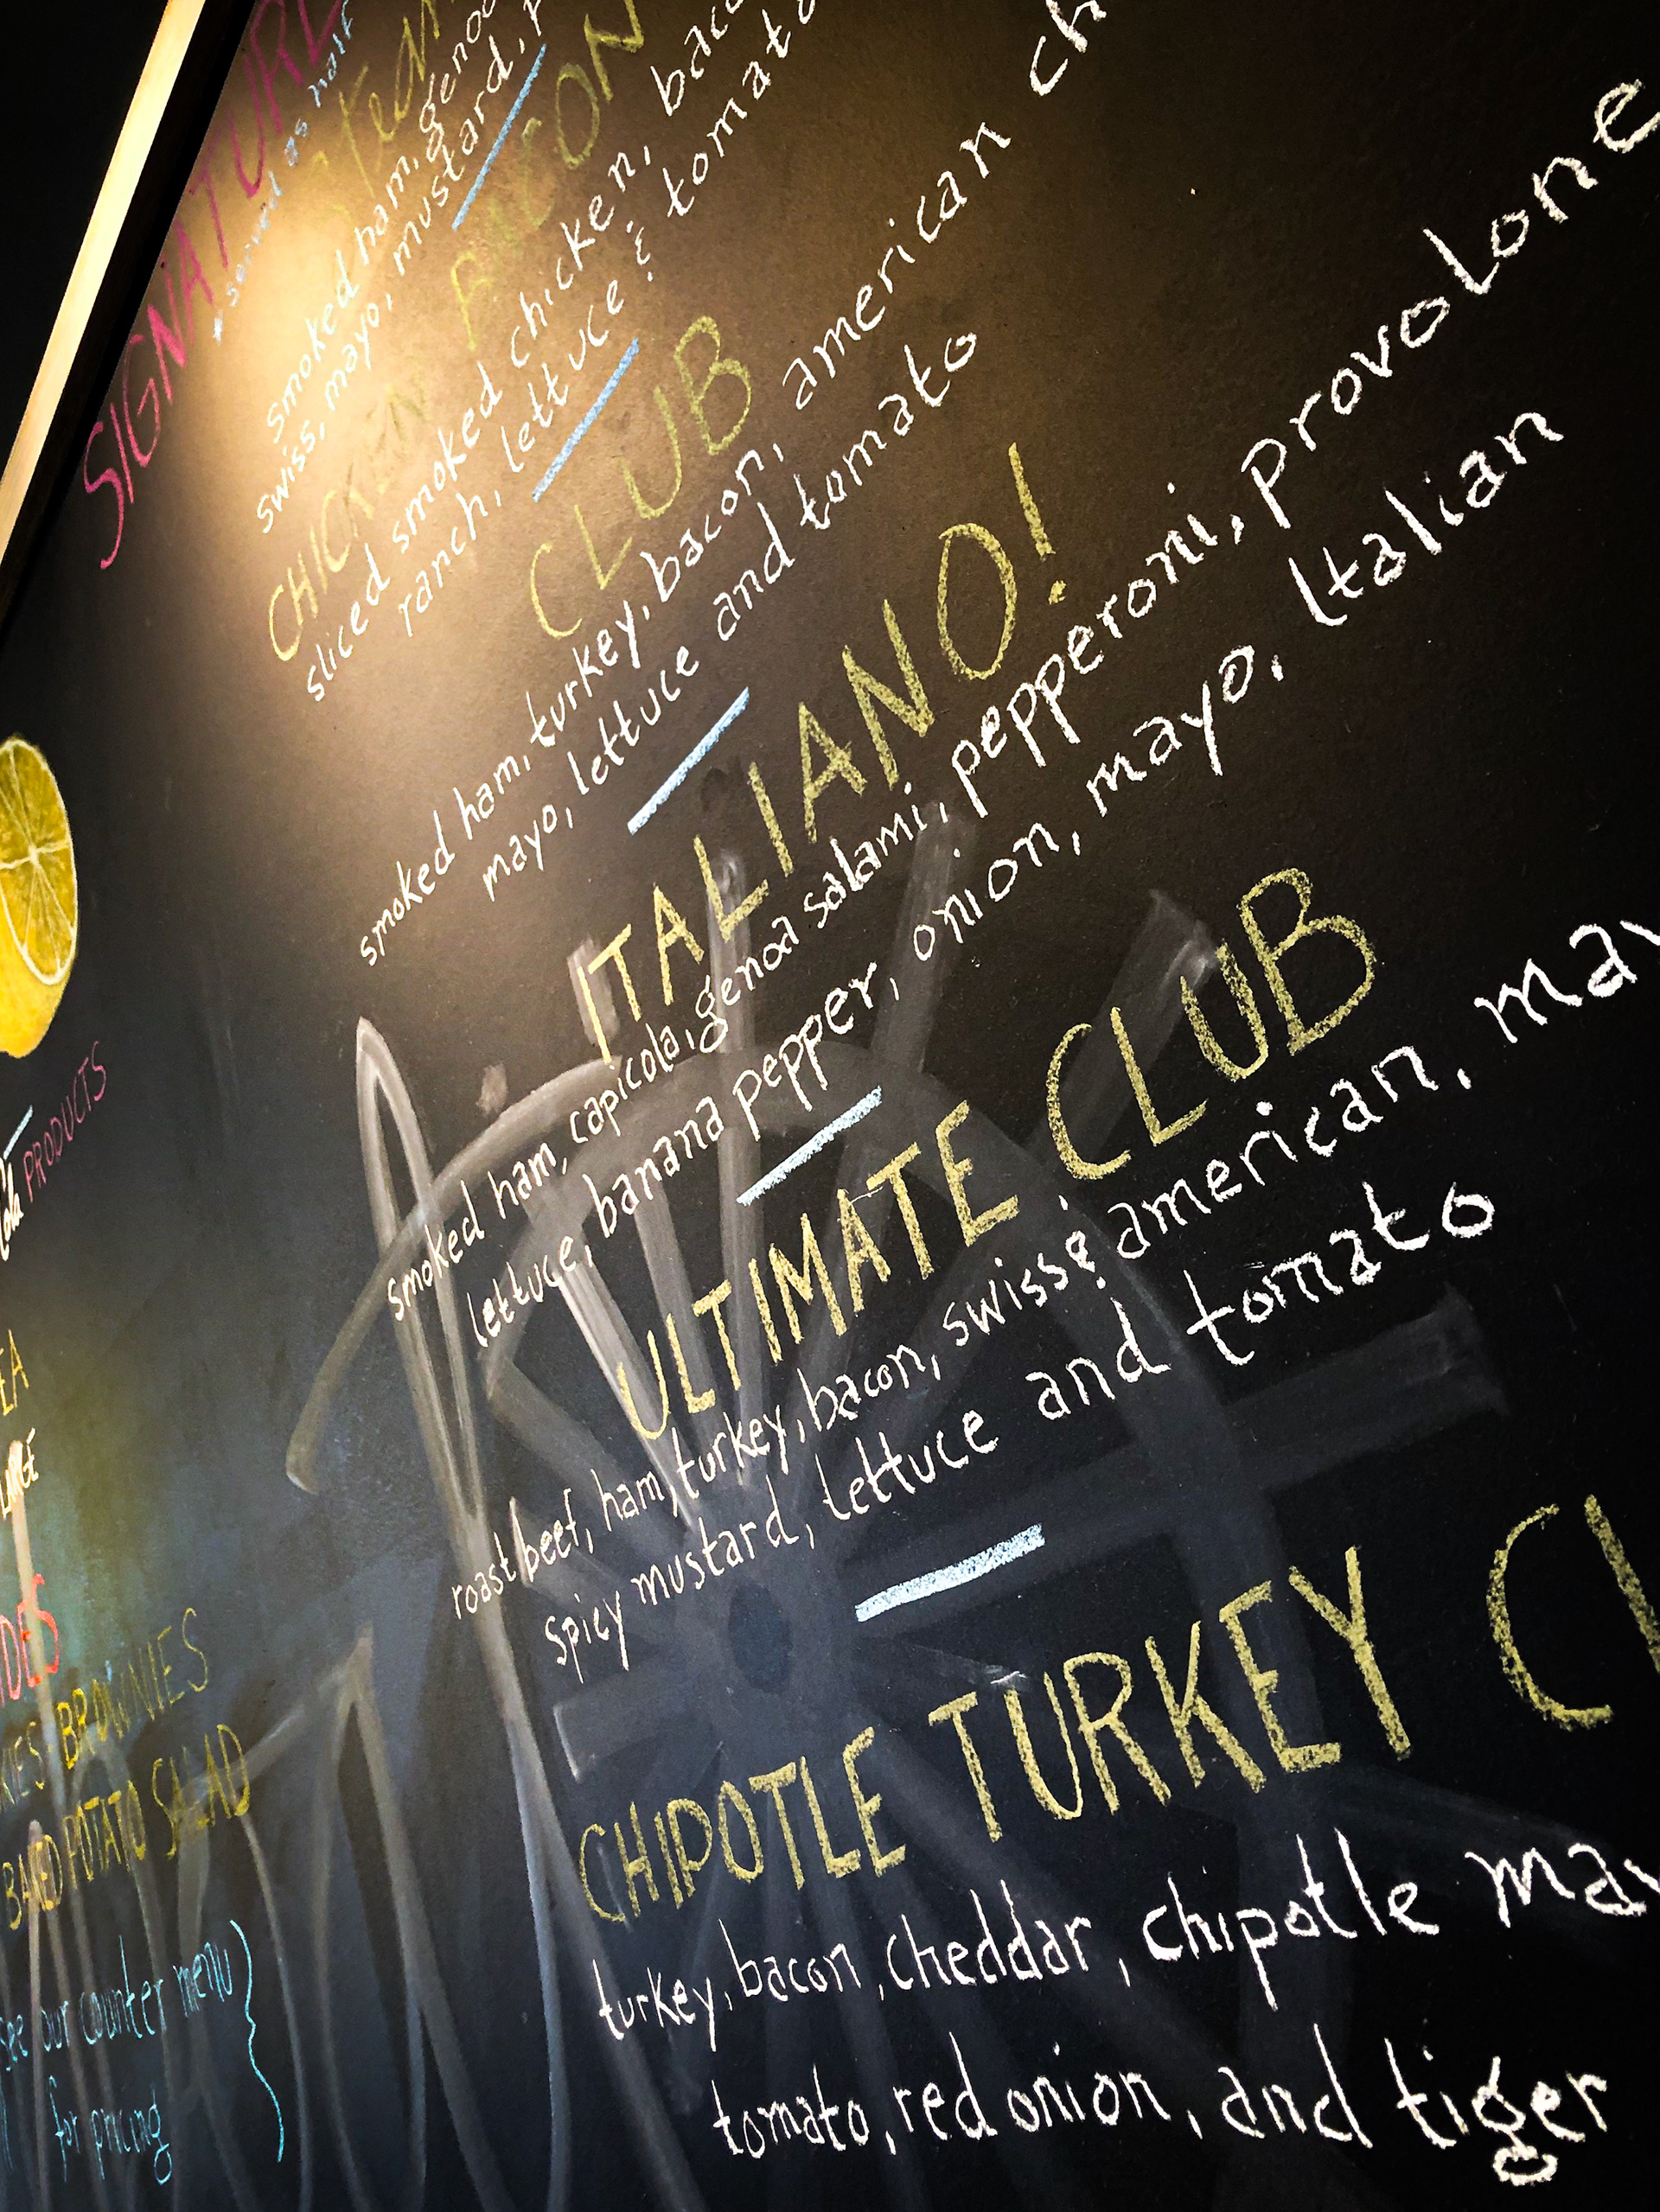 SIGNATURE
* served as half
smoked ham, genoa
swiss, mayo, mustard,
CHICKEN BACON
sliced smoked chicken, bac
ranch, lettuce & tomato
CLUB
smoked ham, turkey, bacon, american ch
mayo, lettuce and tomato
ITALIANO!
smoked ham, capicola, genoa salami, pepperoni, provolone
lettuce, banana pepper, onion, mayo, Italian
ULTIMATE CLUB
roast beef, ham, turkey, bacon, swiss & american, may
spicy mustard, lettuce and tomato
CHIPOTLE TURKEY CL
turkey, bacon, cheddar, chipotle may
tomato, red onion, and tiger
PRODUCTS
EA
DES
KIES · BROWNIES
BAKED POTATO SALAD
see our counter menu
for pricing